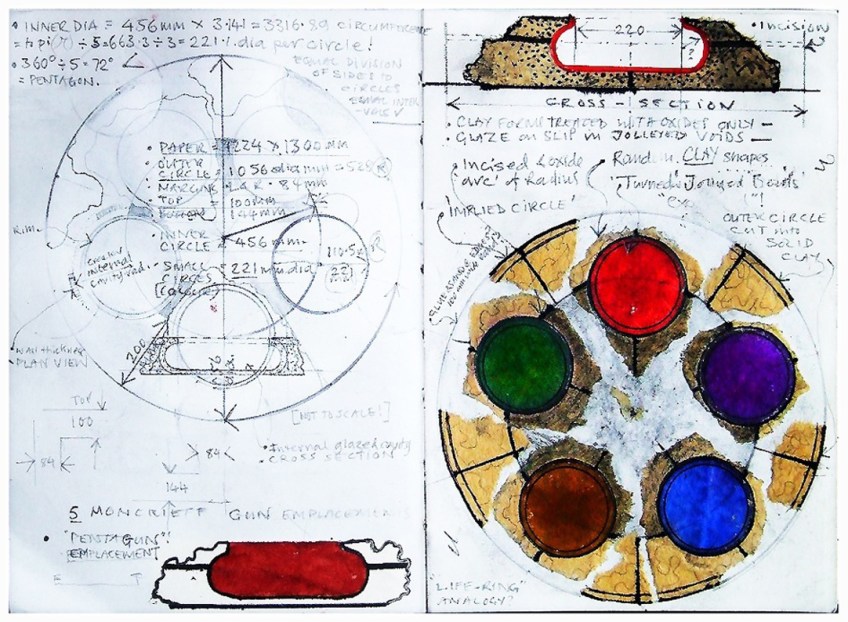 • INNER DIA = 456mm × 3.141 = 3316.89 CIRCUMFERENCE
÷ 5 = 663.3 ÷ 3 = 221.1 dia per circle!
• 360° ÷ 5 = 72° ∠
= PENTAGON.
EQUAL DIVISION
OF SIDES TO
CIRCLES
• PAPER = 1224 × 1300 mm
• OUTER
CIRCLE = 1056 dia mm = 528 R
• MARGINS L & R • 84 mm
• TOP = 100mm
BOTTOM = 144mm
• INNER
CIRCLE = 456mm.
• SMALL = 221 mm dia
CIRCLES
[COLOUR]
RIM.
internal
cavity rad.
110.5
R
221
mm
200
WALL THICKNESS
PLAN VIEW
[NOT TO SCALE!]
TOP
100
84
84
144
• Internal glazed cavity
CROSS SECTION
5 MONCRIEFF GUN EMPLACEMENTS
• "PENTAGUN"!
EMPLACEMENT
220
?
• Incision
CROSS-SECTION
• CLAY FORMS TREATED WITH OXIDES ONLY —
• GLAZE ON SLIP IN JOLLEYED VOIDS —
• Incised & oxide
'arc' of Radius
'IMPLIED CIRCLE'
• Random CLAY shapes
'Turned & Jolleyed Bowls'
OUTER CIRCLE
CUT INTO
SOLID
CLAY
"LIFE-RING"
ANALOGY?